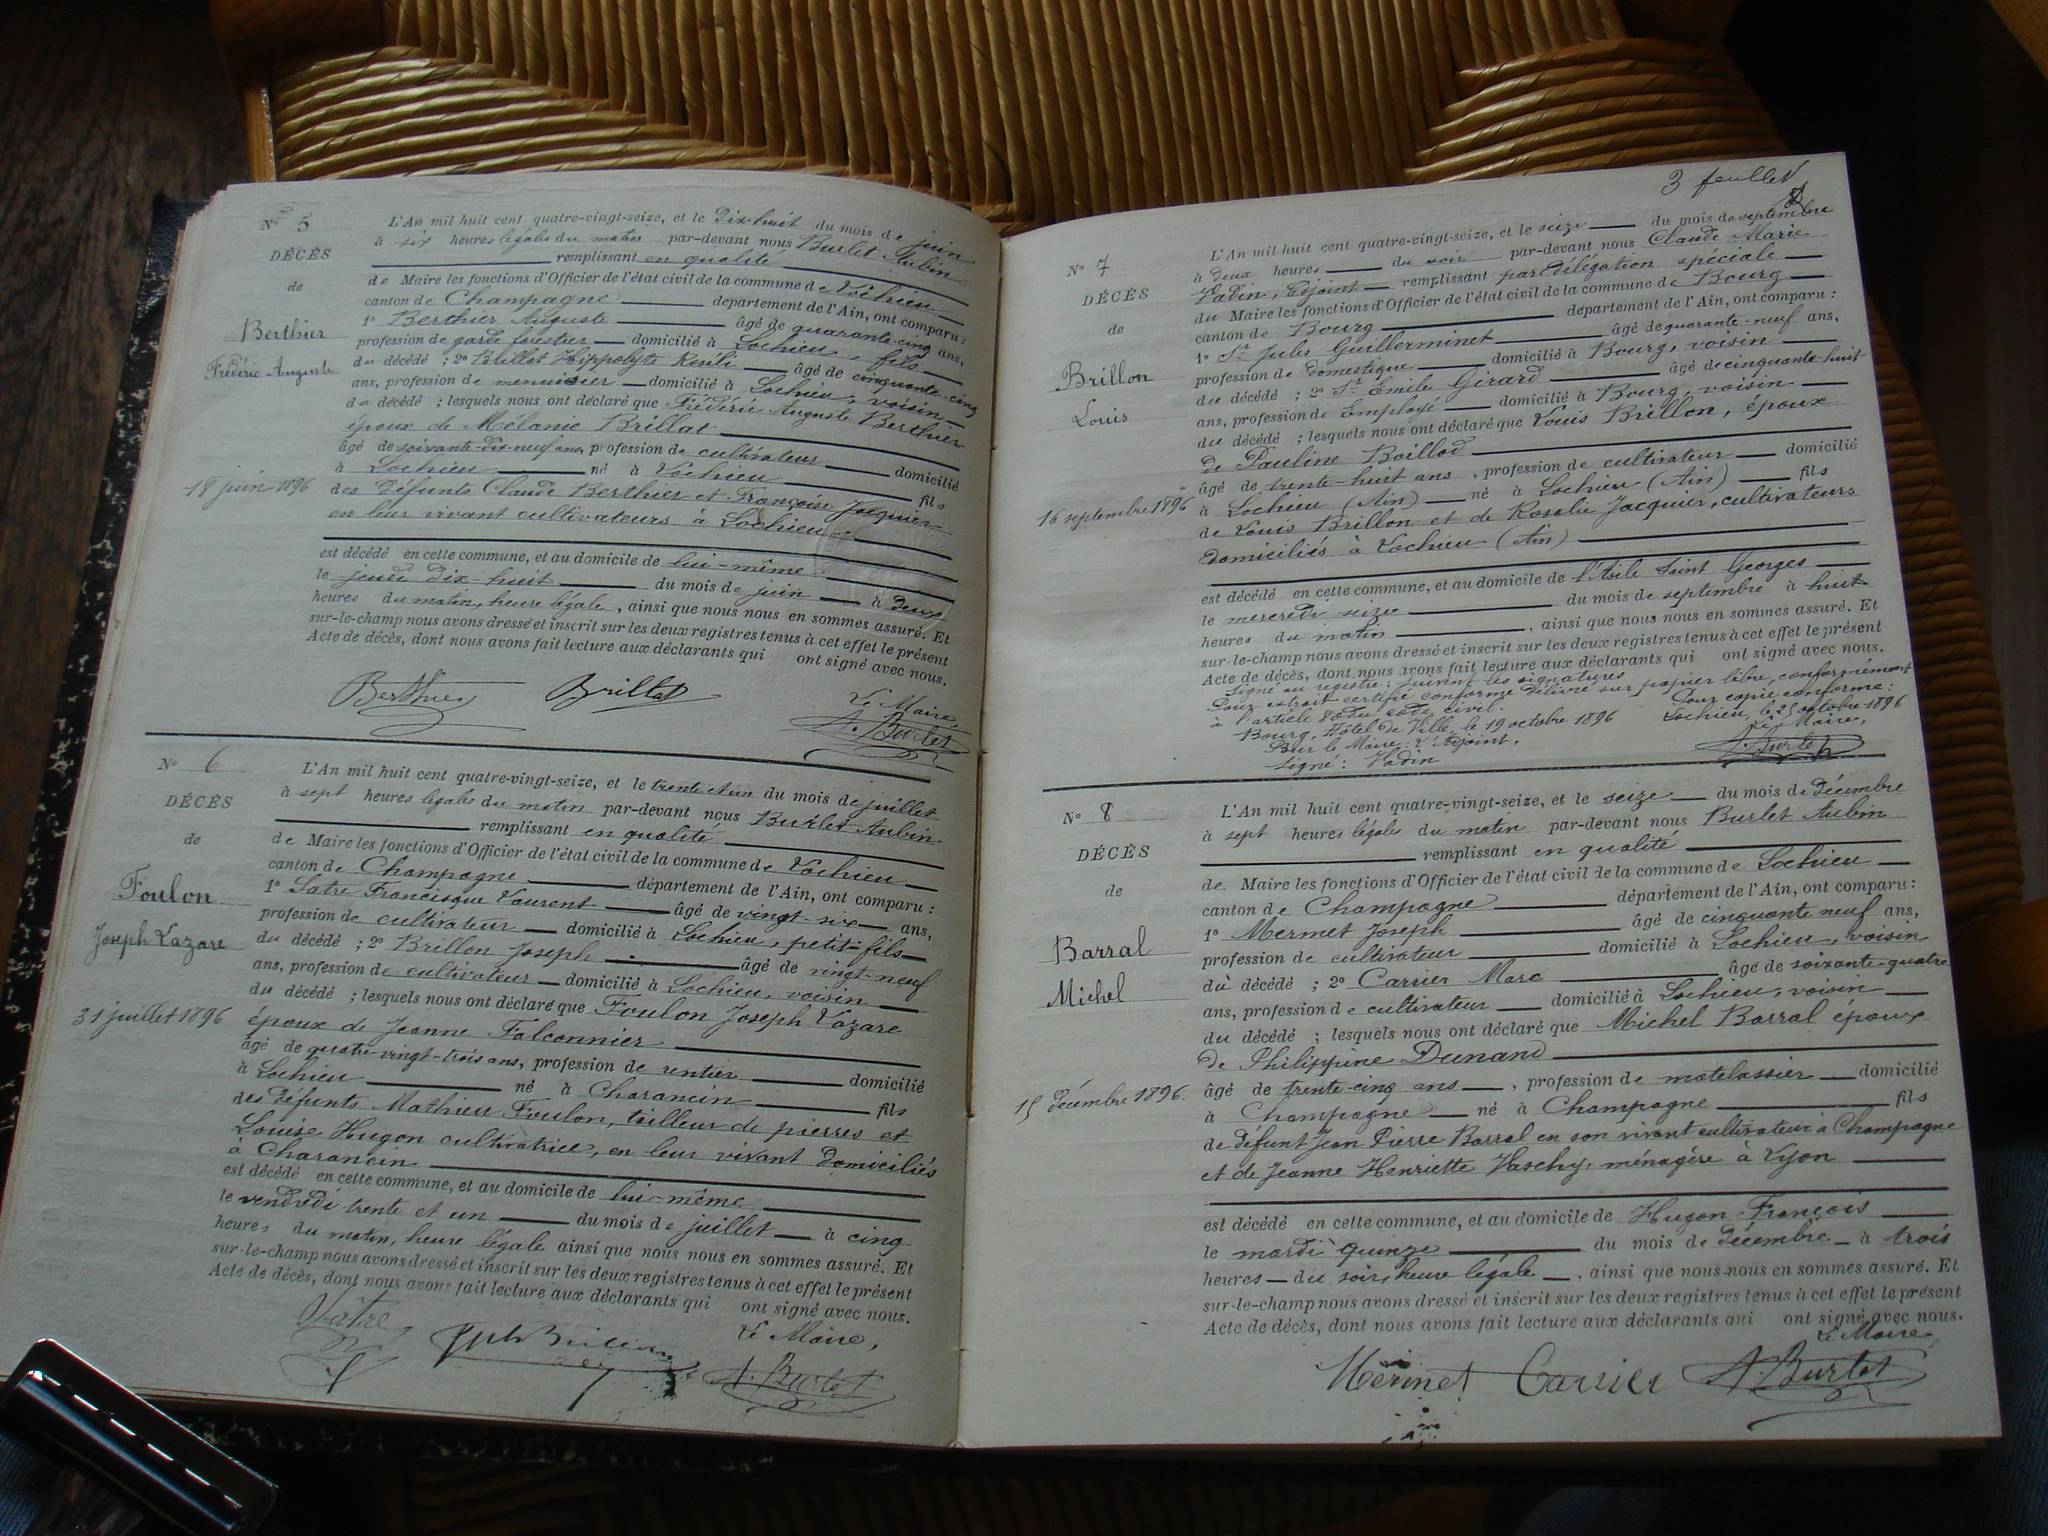 N° 5
DÉCÈS
de
Berthier
Frédéric Auguste
18 juin 1896
L'An mil huit cent quatre-vingt-seize, et le dix-huit du mois de juin
à six heures légales du matin par-devant nous Burlet Aubin
remplissant en qualité
de Maire les fonctions d'Officier de l'état civil de la commune de Lochieu
canton de Champagne département de l'Ain, ont comparu :
1° Berthier Auguste âgé de quarante-cinq ans,
profession de garde forestier domicilié à Lochieu, fils
du décédé ; 2° Brillat Hippolyte âgé de cinquante-cinq
ans, profession de menuisier domicilié à Lochieu, voisin
du décédé ; lesquels nous ont déclaré que Frédéric Auguste Berthier
époux de Mélanie Brillat
âgé de soixante-dix-neuf ans, profession de cultivateur domicilié
à Lochieu né à Lochieu fils
des défunts Claude Berthier et Françoise Jacquier
en leur vivant cultivateurs à Lochieu
est décédé en cette commune, et au domicile de lui-même
le jeudi dix-huit du mois de juin à deux
heures du matin, heure légale, ainsi que nous nous en sommes assuré. Et
sur-le-champ nous avons dressé et inscrit sur les deux registres tenus à cet effet le présent
Acte de décès, dont nous avons fait lecture aux déclarants qui ont signé avec nous.
Berthier Brillat Le Maire,
A. Burlet
N° 6
DÉCÈS
de
Foulon
Joseph Lazare
31 juillet 1896
L'An mil huit cent quatre-vingt-seize, et le trente et un du mois de juillet
à sept heures légales du matin par-devant nous Burlet Aubin
remplissant en qualité
de Maire les fonctions d'Officier de l'état civil de la commune de Lochieu
canton de Champagne département de l'Ain, ont comparu :
1° Satre Francisque Laurent âgé de vingt-six ans,
profession de cultivateur domicilié à Lochieu, petit-fils
du décédé ; 2° Brillon Joseph âgé de vingt-neuf
ans, profession de cultivateur domicilié à Lochieu, voisin
du décédé ; lesquels nous ont déclaré que Foulon Joseph Lazare
époux de Jeanne Falconnier
âgé de quatre-vingt-trois ans, profession de rentier domicilié
à Lochieu né à Charancin fils
des défunts Mathieu Foulon, tailleur de pierres et
Louise Hugon cultivatrice, en leur vivant domiciliés
à Charancin
est décédé en cette commune, et au domicile de lui-même
le vendredi trente et un du mois de juillet à cinq
heures du matin, heure légale ainsi que nous nous en sommes assuré. Et
sur-le-champ nous avons dressé et inscrit sur les deux registres tenus à cet effet le présent
Acte de décès, dont nous avons fait lecture aux déclarants qui ont signé avec nous.
Satre Jph Brillon Le Maire,
A. Burlet
3 feuillet
N° 7
DÉCÈS
de
Brillon
Louis
16 septembre 1896
L'An mil huit cent quatre-vingt-seize, et le seize du mois de septembre
à deux heures du soir par-devant nous Claude Marie
Vadin, Adjoint remplissant par délégation spéciale
du Maire les fonctions d'Officier de l'état civil de la commune de Bourg
canton de Bourg département de l'Ain, ont comparu :
1° Sr Jules Guillerminet âgé de quarante-neuf ans,
profession de domestique domicilié à Bourg, voisin
du décédé ; 2° Sr Emile Girard âgé de cinquante-huit
ans, profession de Employé domicilié à Bourg, voisin
du décédé ; lesquels nous ont déclaré que Louis Brillon, époux
de Pauline Baillod
âgé de trente-huit ans, profession de cultivateur domicilié
à Lochieu (Ain) né à Lochieu (Ain) fils
de Louis Brillon et de Rosalie Jacquier, cultivateurs
domiciliés à Lochieu (Ain)
est décédé en cette commune, et au domicile de l'Asile Saint Georges
le mercredi seize du mois de septembre à huit
heures du matin, ainsi que nous nous en sommes assuré. Et
sur-le-champ nous avons dressé et inscrit sur les deux registres tenus à cet effet le présent
Acte de décès, dont nous avons fait lecture aux déclarants qui ont signé avec nous.
Signé au registre : suivent les signatures
Pour extrait certifié conforme délivré sur papier libre, conformément
à l'article 80 du code civil. Pour copie conforme :
Bourg, Hôtel de Ville, le 19 octobre 1896 Lochieu, le 25 octobre 1896
Pour le Maire : L'Adjoint, Le Maire,
Signé : Vadin A. Burlet
N° 8
DÉCÈS
de
Barral
Michel
15 décembre 1896.
L'An mil huit cent quatre-vingt-seize, et le seize du mois de décembre
à sept heures légales du matin par-devant nous Burlet Aubin
remplissant en qualité
de Maire les fonctions d'Officier de l'état civil de la commune de Lochieu
canton de Champagne département de l'Ain, ont comparu :
1° Mermet Joseph âgé de cinquante neuf ans,
profession de cultivateur domicilié à Lochieu, voisin
du décédé ; 2° Carrier Marc âgé de soixante-quatre
ans, profession de cultivateur domicilié à Lochieu, voisin
du décédé ; lesquels nous ont déclaré que Michel Barral époux
de Philippine Dunand
âgé de trente-cinq ans, profession de matelassier domicilié
à Champagne né à Champagne fils
de défunt Jean Pierre Barral en son vivant cultivateur à Champagne
et de Jeanne Henriette Vaschy, ménagère à Lyon
est décédé en cette commune, et au domicile de Hugon François
le mardi quinze du mois de décembre à trois
heures du soir, heure légale, ainsi que nous nous en sommes assuré. Et
sur-le-champ nous avons dressé et inscrit sur les deux registres tenus à cet effet le présent
Acte de décès, dont nous avons fait lecture aux déclarants qui ont signé avec nous.
Le Maire
Mermet Carrier A. Burlet